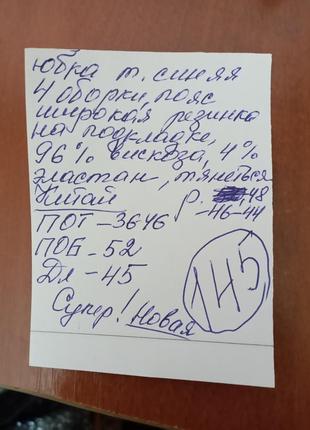 юбка т. синяя
4 оборки, пояс
широкая резинка
на подкладке,
96% вискоза, 4%
эластан, тянеться
Китай р. 48
-46-44
ПОТ-3646
ПОБ-52
Дл-45
145
Супер! Новая